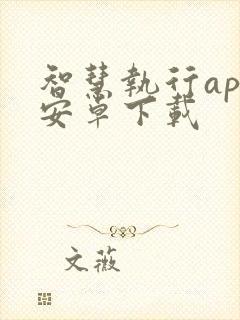 智慧執行ap
安卓下載
文薇